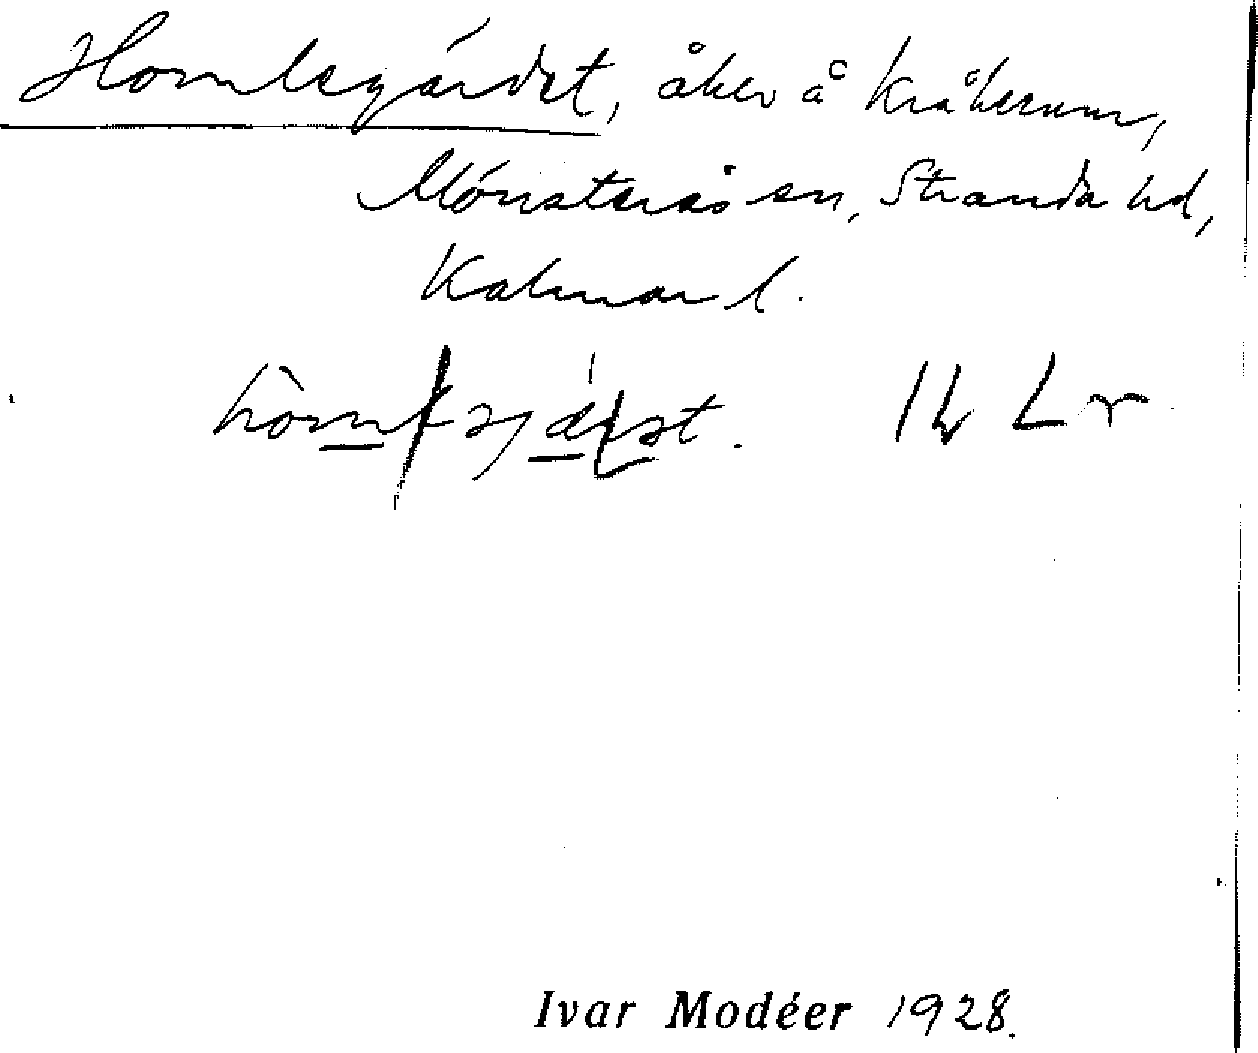 Homlegärdet, åker å Kråkerum,
Mönsterås sn, Stranda hd,
Kalmar l.
Ivar Modéer 1928.